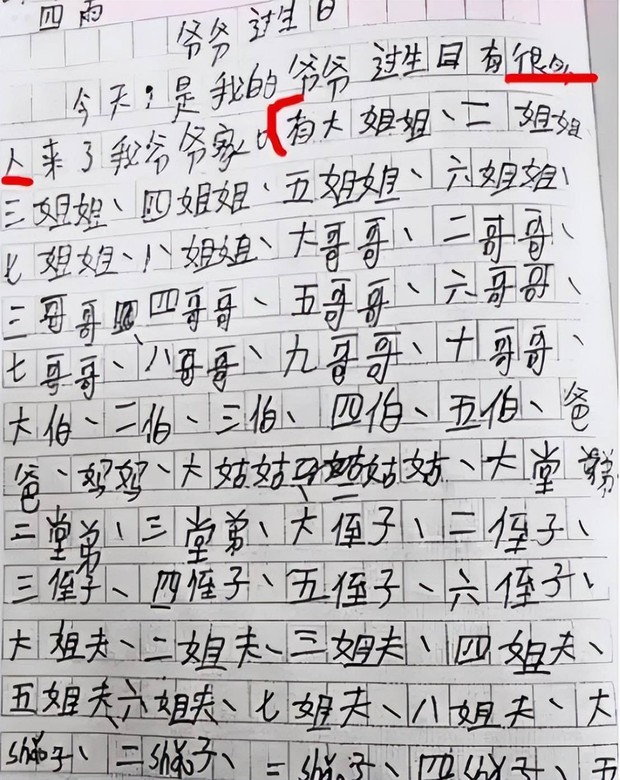 四雨
爷爷过生日
今天,是我的爷爷过生日有很多
人来了我爷爷家。有大姐姐、二姐姐
三姐姐、四姐姐、五姐姐、六姐姐、
七姐姐、八姐姐、大哥哥、二哥哥、
三哥哥四哥哥、五哥哥、六哥哥、
七哥哥、八哥哥、九哥哥、十哥哥、
大伯、二伯、三伯、四伯、五伯、爸
爸、妈妈、大姑姑、二姑姑、大堂弟
二堂弟、三堂弟、大侄子、二侄子、
三侄子、四侄子、五侄子、六侄子、
大姐夫、二姐夫、三姐夫、四姐夫、
五姐夫、六姐夫、七姐夫、八姐夫、大
sháo子、二sháo子、三sháo子、四sháo子、五